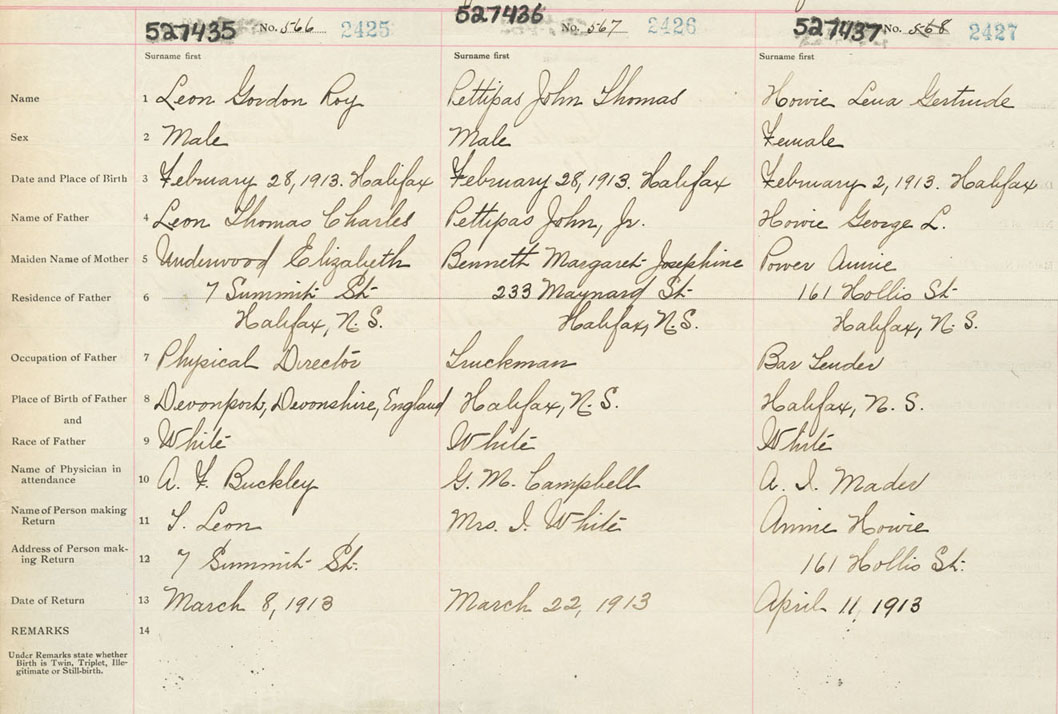 527435 No. 566 2425 527436 No. 567 2426 527437 No. 568 2427
Surname first Surname first Surname first
Name 1 Leon Gordon Roy Pettipas John Thomas Howie Lena Gertrude
Sex 2 Male Male Female
Date and Place of Birth 3 February 28, 1913. Halifax February 28, 1913. Halifax February 2, 1913. Halifax
Name of Father 4 Leon Thomas Charles Pettipas John, Jr. Howie George L.
Maiden Name of Mother 5 Underwood Elizabeth Bennett Margaret Josephine Power Annie
Residence of Father 6 7 Summit St. 233 Maynard St. 161 Hollis St.
Halifax, N.S. Halifax, N.S. Halifax, N.S.
Occupation of Father 7 Physical Director Truckman Bar Tender
Place of Birth of Father 8 Devonport, Devonshire, England Halifax, N.S. Halifax, N.S.
and
Race of Father 9 White White White
Name of Physician in
attendance 10 A. F. Buckley G. M. Campbell A. I. Mader
Name of Person making
Return 11 T. Leon Mrs. I. White Annie Howie
Address of Person mak-
ing Return 12 7 Summit St. 161 Hollis St.
Date of Return 13 March 8, 1913 March 22, 1913 April 11, 1913
REMARKS 14
Under Remarks state whether
Birth is Twin, Triplet, Ille-
gitimate or Still-birth.